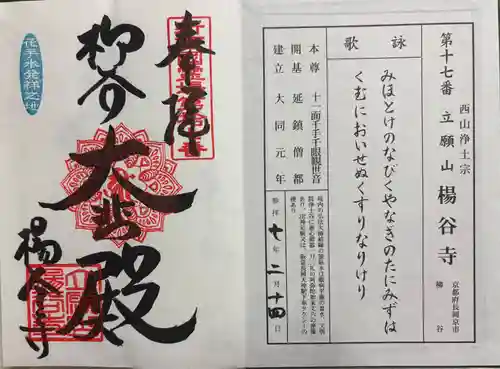 西山浄土宗
第十七番 立願山 楊谷寺
京都府長岡京市
柳谷
詠歌
みほとけのなびくやなぎのたにみずは
くむにおいせぬくすりなりけり
本尊 十一面千手千眼観世音
開基 延鎮僧都
建立 大同元年
参拝 七年二月十四日
奉拝
大悲殿
柳谷
楊谷寺
花手水発祥之地